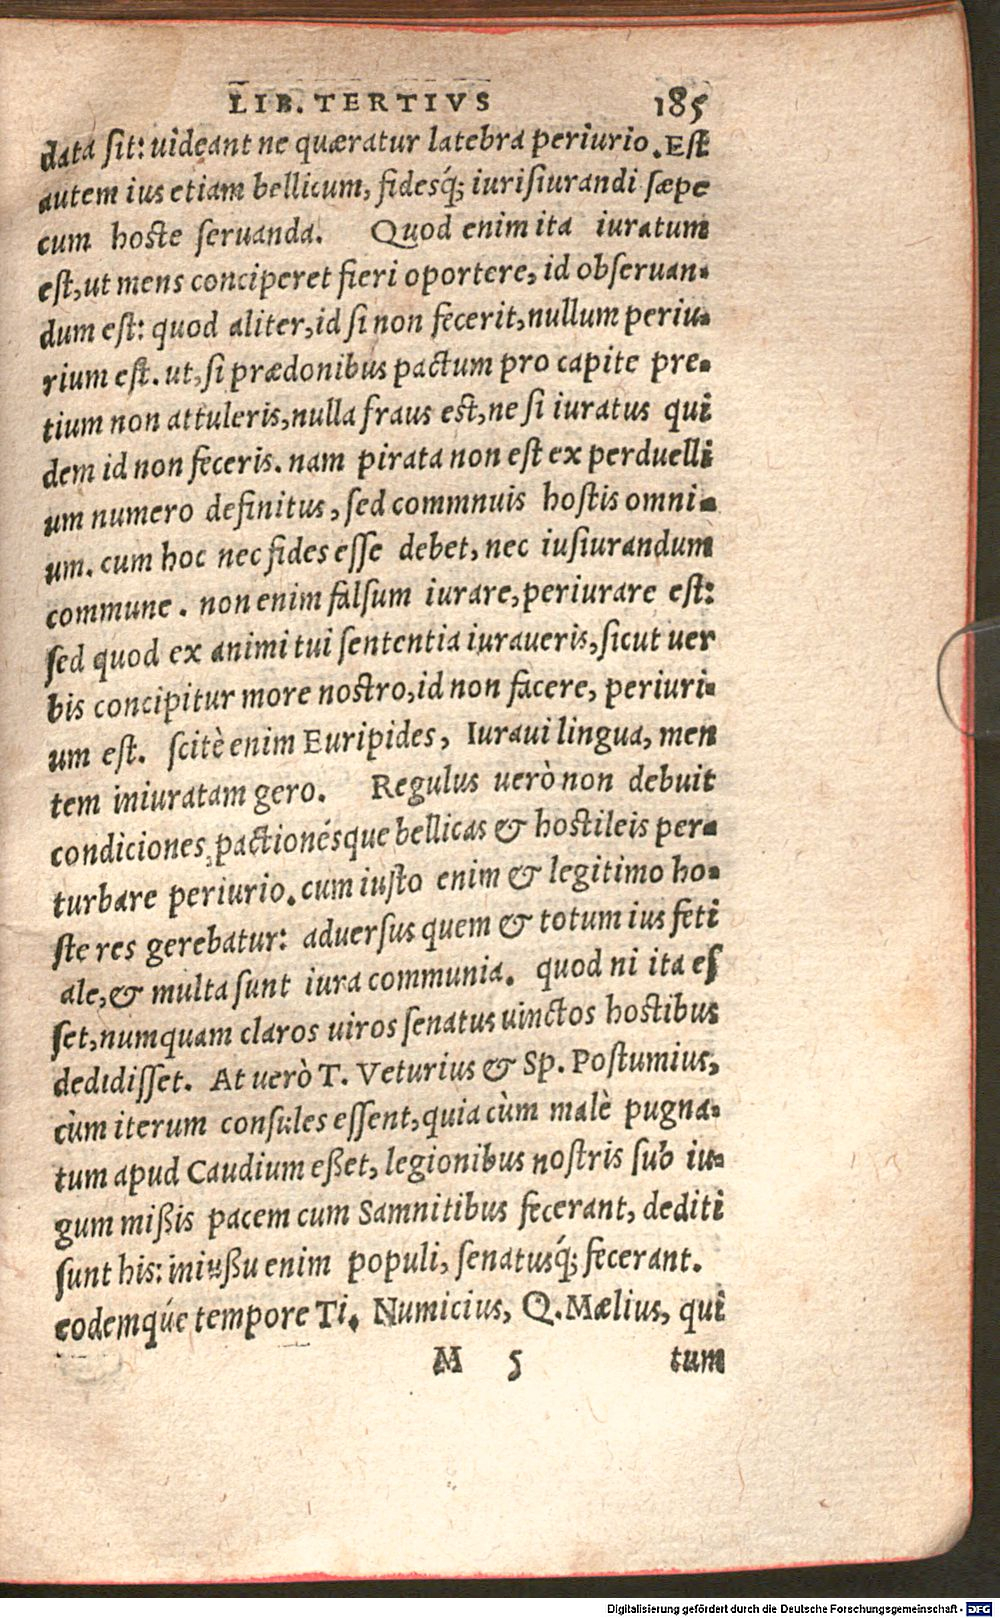 LIB. TERTIVS 185
data sit: uideant ne quæratur latebra periurio. Est
autem ius etiam bellicum, fidesq́; iurisiurandi sæpe
cum hoste seruanda. Quod enim ita iuratum
est, ut mens conciperet fieri oportere, id obseruan-
dum est: quod aliter, id si non fecerit, nullum periu-
rium est. ut, si prædonibus pactum pro capite pre-
tium non attuleris, nulla fraus est, ne si iuratus qui
dem id non feceris. nam pirata non est ex perduelli
um numero definitus, sed commnuis hostis omni-
um. cum hoc nec fides esse debet, nec iusiurandum
commune. non enim falsum iurare, periurare est:
sed quod ex animi tui sententia iuraueris, sicut uer
bis concipitur more nostro, id non facere, periuri-
um est. scitè enim Euripides, Iuraui lingua, men
tem iniuratam gero. Regulus uerò non debuit
condiciones pactionésque bellicas & hostileis per-
turbare periurio. cum iusto enim & legitimo ho-
ste res gerebatur: aduersus quem & totum ius feti
ale, & multa sunt iura communia. quod ni ita es
set, numquam claros uiros senatus uinctos hostibus
dedidisset. At uerò T. Veturius & Sp. Postumius,
cùm iterum consules essent, quia cùm malè pugna-
tum apud Caudium eßet, legionibus nostris sub iu-
gum mißis pacem cum Samnitibus fecerant, dediti
sunt his: iniußu enim populi, senatusq́; fecerant.
eodemqúe tempore Ti. Numicius, Q. Mælius, qui
M 5 tum
Digitalisierung gefördert durch die Deutsche Forschungsgemeinschaft - DFG